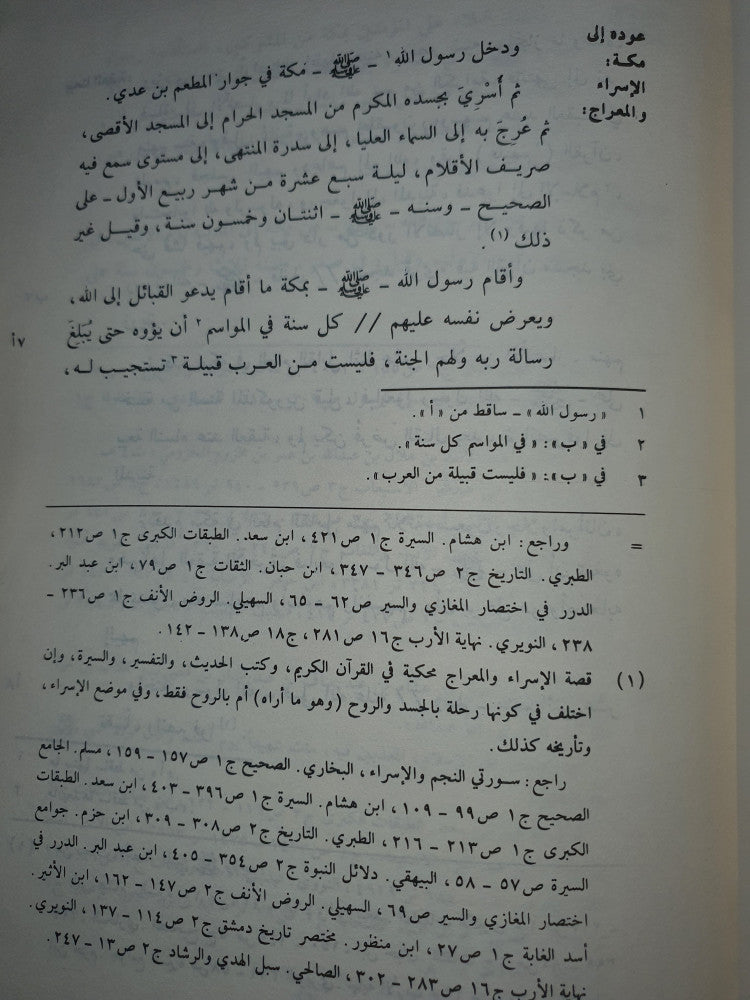 عوده إلى
مكة:
الإسراء
والمعراج:
ودخل رسول الله ١ ـ ﷺ ـ مكة في جوار المطعم بن عدي.
ثم أُسْرِيَ بجسده المكرم من المسجد الحرام إلى المسجد الأقصى،
ثم عُرِجَ به إلى السماء العليا، إلى سدرة المنتهى، إلى مستوى سمع فيه
صريف الأقلام، ليلة سبع عشرة من شهر ربيع الأول ـ على
الصحيح ـ وسنه ـ ﷺ ـ اثنتان وخمسون سنة، وقيل غير
ذلك (١).
وأقام رسول الله ـ ﷺ ـ بمكة ما أقام يدعو القبائل إلى الله،
ويعرض نفسه عليهم // كل سنة في المواسم ٢ أن يؤوه حتى يُبَلِّغَ
٧أ
رسالة ربه ولهم الجنة، فليست من العرب قبيلة ٣ تستجيب له،
١ «رسول الله» ـ ساقط من «أ».
٢ في «ب»: «في المواسم كل سنة».
٣ في «ب»: «فليست قبيلة من العرب».
= وراجع: ابن هشام. السيرة ج١ ص٤٢١، ابن سعد. الطبقات الكبرى ج١ ص٢١٢،
الطبري. التاريخ ج٢ ص٣٤٦ ـ ٣٤٧، ابن حبان. الثقات ج١ ص٧٩، ابن عبد البر.
الدرر في اختصار المغازي والسير ص٦٢ ـ ٦٥، السهيلي. الروض الأنف ج١ ص٢٣٦ ـ
٢٣٨، النويري. نهاية الأرب ج١٦ ص٢٨١، ج١٨ ص١٣٨ ـ ١٤٢.
(١) قصة الإسراء والمعراج محكية في القرآن الكريم، وكتب الحديث، والتفسير، والسيرة، وإن
اختلف في كونها رحلة بالجسد والروح (وهو ما أراه) أم بالروح فقط، وفي موضع الإسراء،
وتأريخه كذلك.
راجع: سورتي النجم والإسراء، البخاري. الصحيح ج١ ص١٥٧ ـ ١٥٩، مسلم. الجامع
الصحيح ج١ ص٩٩ ـ ١٠٩، ابن هشام. السيرة ج١ ص٣٩٦ ـ ٤٠٣، ابن سعد. الطبقات
الكبرى ج١ ص٢١٣ ـ ٢١٦، الطبري. التاريخ ج٢ ص٣٠٨ ـ ٣٠٩، ابن حزم. جوامع
السيرة ص٥٧ ـ ٥٨، البيهقي. دلائل النبوة ج٢ ص٣٥٤ ـ ٤٠٥، ابن عبد البر. الدرر في
اختصار المغازي والسير ص٦٩، السهيلي. الروض الأنف ج٢ ص١٤٧ ـ ١٦٢، ابن الأثير.
أسد الغابة ج١ ص٢٧، ابن منظور. مختصر تاريخ دمشق ج٢ ص١١٤ ـ ١٣٧، النويري.
نهاية الأرب ج١٦ ص٢٨٣ ـ ٣٠٢، الصالحي. سبل الهدي والرشاد ج٢ ص١٣ ـ ٢٤٧.